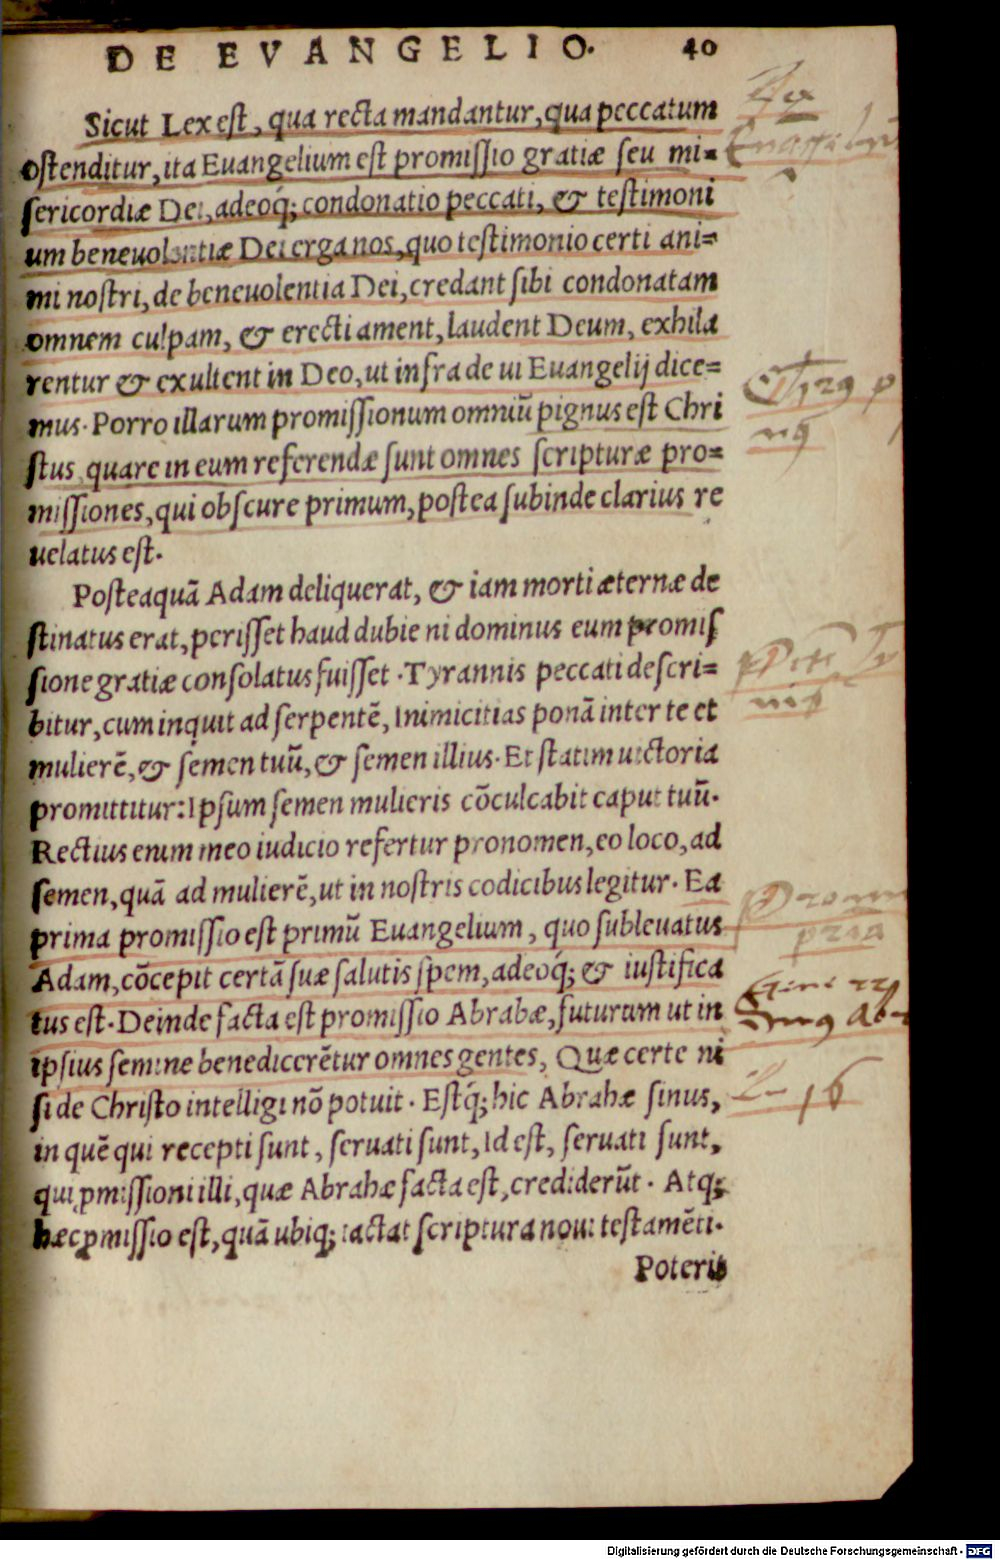 DE EVANGELIO. 40
Sicut Lex est, qua recta mandantur, qua peccatum
ostenditur, ita Euangelium est promissio gratiæ seu mi=
sericordiæ Dei, adeoq́;condonatio peccati, & testimoni
um beneuolentiæ Dei erga nos, quo testimonio certi ani=
mi nostri, de beneuolentia Dei, credant sibi condonatam
omnem culpam, & erecti ament, laudent Deum, exhila
rentur & exultent in Deo, ut infra de ui Euangelij dice=
mus. Porro illarum promissionum omniū pignus est Chri
stus, quare in eum referendæ sunt omnes scripturæ pro=
missiones, qui obscure primum, postea subinde clarius re
uelatus est.
Posteaquā Adam deliquerat, & iam morti æternæ de
stinatus erat, perisset haud dubie ni dominus eum promis
sione gratiæ consolatus fuisset. Tyrannis peccati descri=
bitur, cum inquit ad serpentē, Inimicitias ponā inter te et
mulierē, & semen tuū, & semen illius. Et statim uictoria
promittitur: Ipsum semen mulieris cōculcabit caput tuū.
Rectius enim meo iudicio refertur pronomen, eo loco, ad
semen, quā ad mulierē, ut in nostris codicibus legitur. Ea
prima promissio est primū Euangelium, quo subleuatus
Adam, cōcepit certā suæ salutis spem, adeoq́; & iustifica
tus est. Deinde facta est promissio Abrahæ, futurum ut in
ipsius semine benedicerētur omnes gentes, Quæ certe ni
si de Christo intelligi nō potuit. Estq́; hic Abrahæ sinus,
in quē qui recepti sunt, seruati sunt, Id est, seruati sunt,
qui ꝓmissioni illi, quæ Abrahæ facta est, crediderūt. Atq;
hæc ꝓmissio est, quā ubiq; iactat scriptura noui testamēti.
Poterit
16
Digitalisierung gefördert durch die Deutsche Forschungsgemeinschaft - DFG